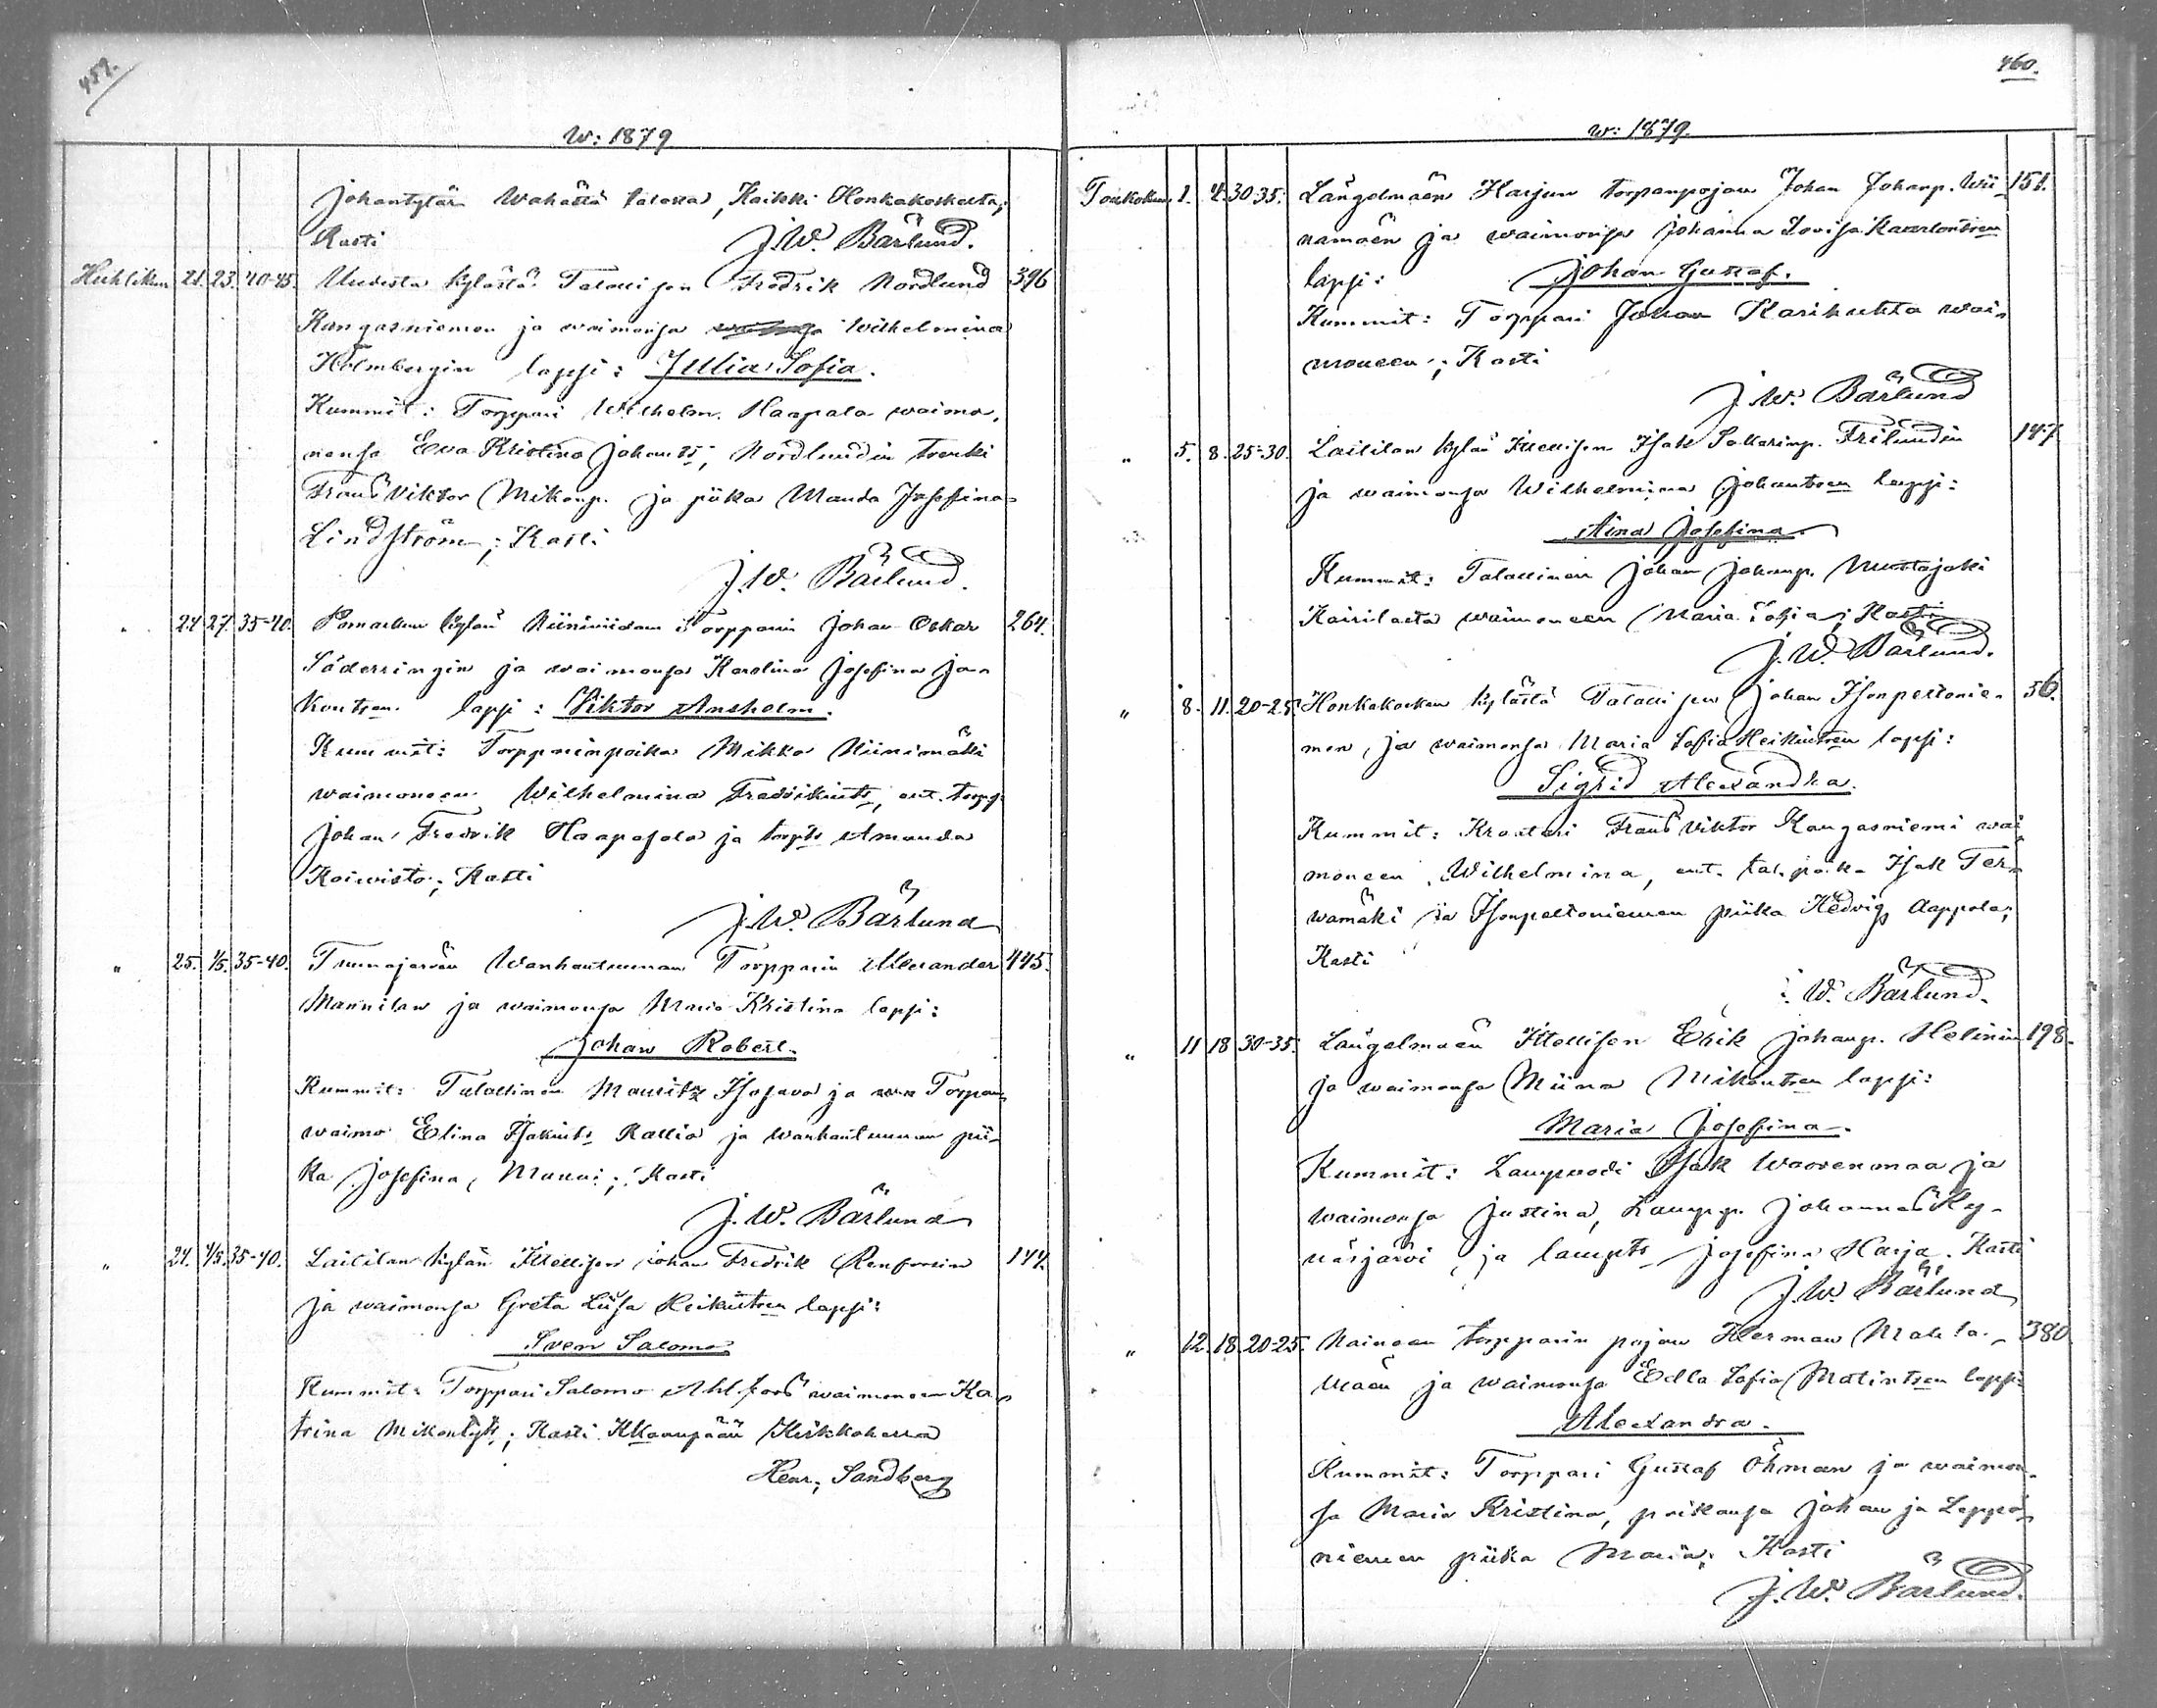 459.
w: 1879
Johantytär Wahässä talossa, Kaikki Honkakoskelta;
Kasti J. W. Bärlund.
Huhtikuu 21. 23. 40-45. Uudesta kylästä Talollisen Fredrik Nordlund 396
Kangasniemen ja waimonsa Wilhelmina
Holmbergin lapsi: Jullia Sofia.
Kummit: Torppari Wilhelm Haapala waimo-
nensa Eva Kristina Johants, Nordlundin trenki
Frans Viktor Mikonp. ja piika Manda Josefina
Lindström; Kasti
J. W. Bärlund.
24 27. 35-40. Pomarkun kylän Niiniviidan Torpparin Johan Oskar 264.
Söderringin ja waimonsa Karolina Josefina Ja-
kontsen lapsi: Viktor Ansholm.
Kummit: Torpparinpoika Mikko Niinimäki
waimoneen Wilhelmina Fredrikints, ent. torpp.
Johan Fredrik Haapasalo ja torpts Amanda
Koiwisto; Kasti
J. W. Bärlund
" 25. 1/5. 35-40. Tuunajärven Wanhantuunan Torpparin Alexander 445.
Mannilan ja waimonsa Maria Kristina lapsi:
Johan Robert.
Kummit: Talollinen Mauritz Isosavo ja Torpan
waimo Elina Isakints Kallio ja Wanhantuunan pii-
ka Josefina Manni; Kasti
J. W. Bärlund
" 24. 4/5. 35-40. Laililan kylän Itsellisen Johan Fredrik Renforsin 144.
ja waimonsa Greta Liisa Heikintsen lapsi:
Sven Salomo
Kummit: Torppari Salomo Ahlfors waimoneen Ka-
trina Mikontyt; Kasti Kkaanpään Kirkkoherra
Henr. Sandberg
460.
w: 1879.
Toukokuu 1. 4. 30-35. Längelmäen Harjun torpanpojan Johan Johanp. Wii- 151.
namäen ja waimonsa Johanna Lovisa Kaarlontsen
lapsi: Johan Gustaf.
Kummit: Torppari Johan Karihuhta wai-
moneen; Kasti
J. W. Bärlund
" 5. 8. 25-30. Laililan kylän Itsellisen Isak Sakarinp. Frilundin 147
ja waimonsa Wilhelmina Johantsen lapsi:
Aina Josefina
Kummit: Talollinen Johan Johanp. Mustajoki
Kairilasta waimoneen Maria Sofia; Kasti
J. W. Bärlund.
" 8. 11. 20-25. Honkakosken kylästä Talollisen Johan Isonpeltonie- 56.
men, ja waimonsa Maria Sofia Heikintsen lapsi:
Sigrid Alexandra.
Kummit: Kraatari Frans Viktor Kangasniemi wai-
moneen Wilhelmina, ent. tal. poika Isak Ter-
wamäki ja Isonpeltoniemen piika Hedvig Aappola;
Kasti
J. W. Bärlund.
" 11 18 30-35. Längelmäen Itsellisen Erik Johanp. Helinin 198.
ja waimonsa Miina Mikontsen lapsi:
Maria Josefina.
Kummit: Lampuodi Isak Waorenmaa ja
waimonsa Justina, Lampp. Johannes Ky-
näsjärvi, ja lampts Josefina Harja. Kasti
J. W. Bärlund
" 12. 18. 20-25. Hainoan torpparin pojan Herman Mahla- 380
maan ja waimonsa Edla Sofia Matintsen lapsi:
Alexandra.
Kummit: Torppari Gustaf Öhman ja waimon-
sa Maria Kristina, poikansa Johan ja Leppä-
niemen piika Maria; Kasti
J. W. Bärlund.